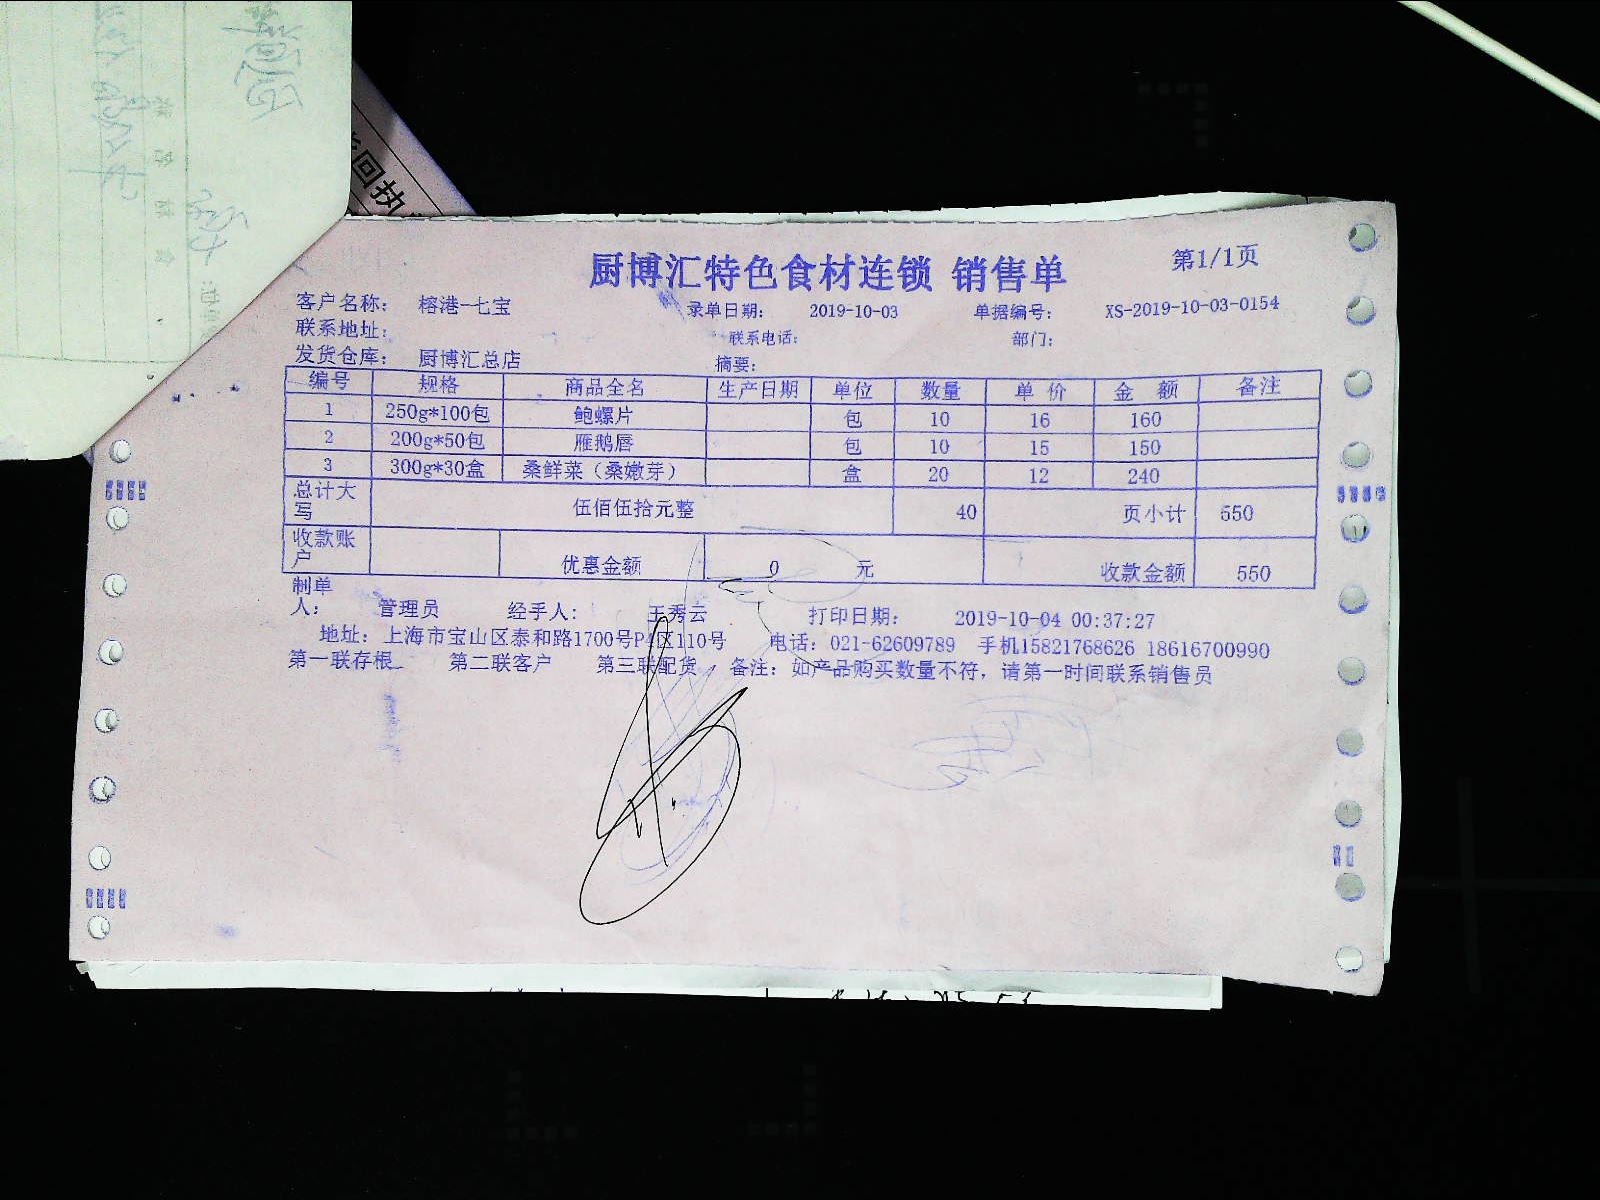 回执
厨博汇特色食材连锁 销售单 第1/1页
客户名称: 榕港-七宝 录单日期: 2019-10-03 单据编号: XS-2019-10-03-0154
联系地址: 联系电话: 部门:
发货仓库: 厨博汇总店 摘要:
编号 规格 商品全名 生产日期 单位 数量 单 价 金 额 备注
1 250g*100包 鲍螺片 包 10 16 160
2 200g*50包 雁鹅唇 包 10 15 150
3 300g*30盒 桑鲜菜（桑嫩芽） 盒 20 12 240
总计大写 伍佰伍拾元整 40 页小计 550
收款账户 优惠金额 0 元 收款金额 550
制单人: 管理员 经手人: 王秀云 打印日期: 2019-10-04 00:37:27
地址: 上海市宝山区泰和路1700号P4区110号 电话: 021-62609789 手机15821768626 18616700990
第一联存根 第二联客户 第三联配货 备注: 如产品购买数量不符，请第一时间联系销售员